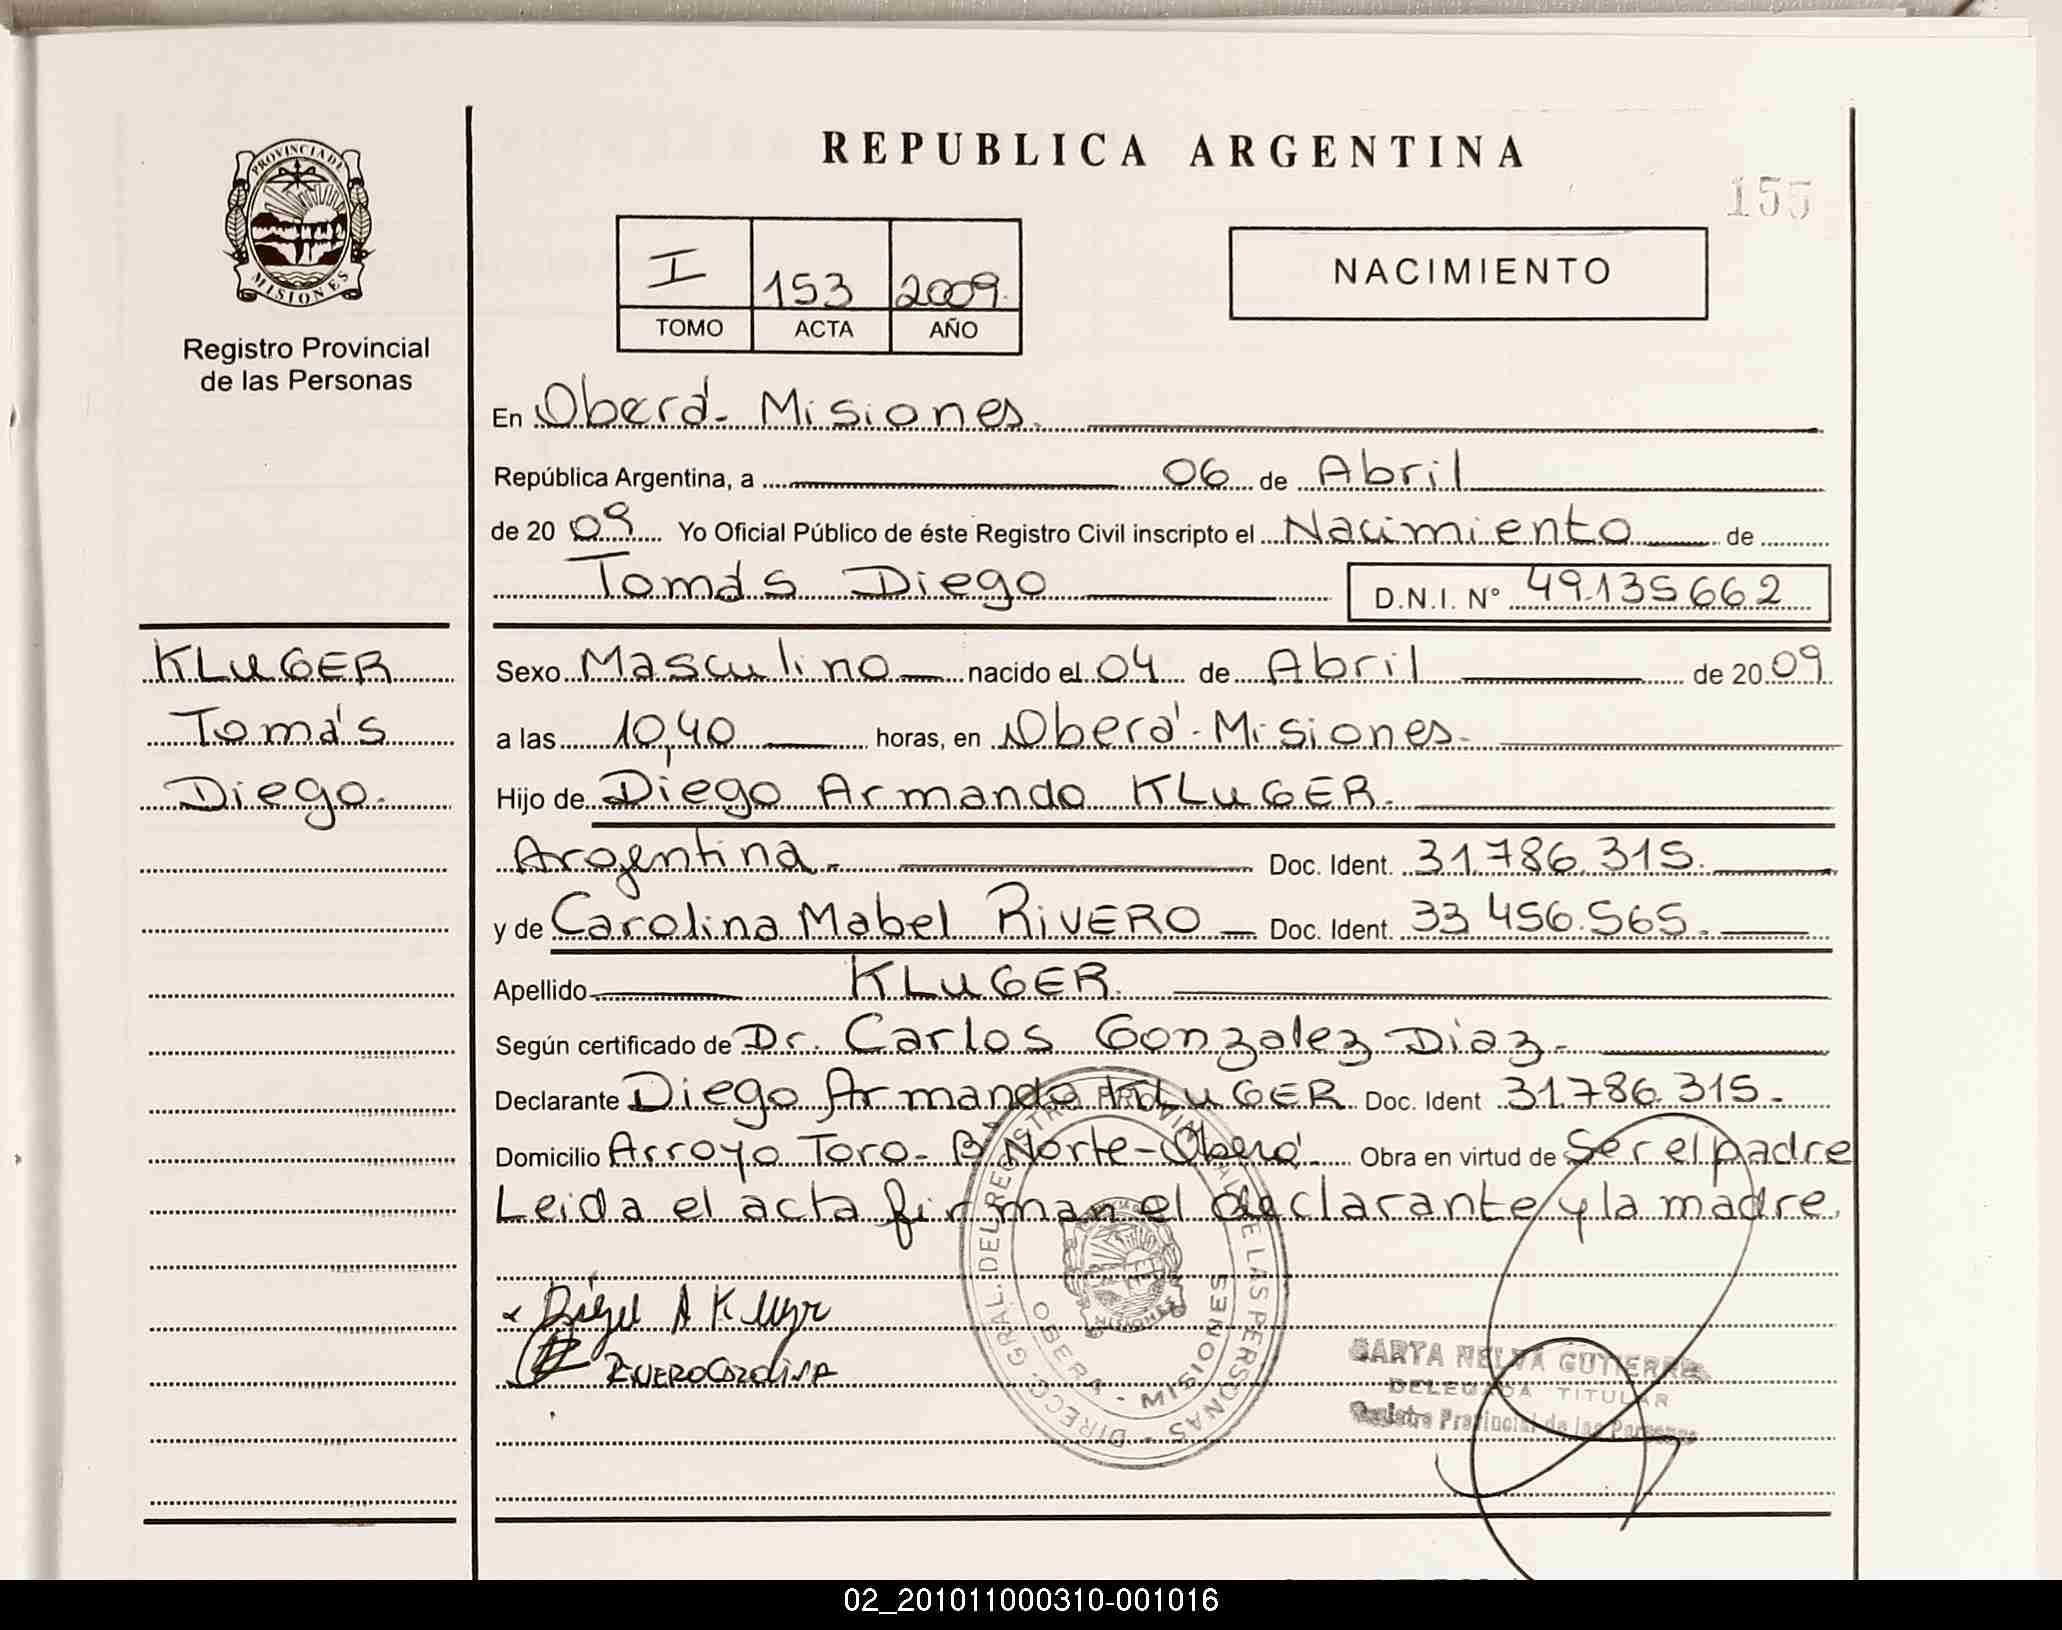 REPUBLICA ARGENTINA
155
PROVINCIA DE
MISIONES
Registro Provincial
de las Personas
I 153 2009.
TOMO ACTA AÑO
NACIMIENTO
En Oberá - Misiones.
República Argentina, a 06 de Abril
de 20 09 Yo Oficial Público de éste Registro Civil inscripto el Nacimiento de
Tomás Diego D.N.I. N° 49.135662
KLUGER
Tomás
Diego.
Sexo Masculino nacido el 04 de Abril de 20 09
a las 10,40 horas, en Oberá - Misiones.
Hijo de Diego Armando KLUGER.
Argentina. Doc. Ident. 31.786.315.
y de Carolina Mabel RIVERO Doc. Ident. 33 456.565.
Apellido KLUGER.
Según certificado de Dr. Carlos Gonzalez Diaz.
Declarante Diego Armando KLUGER Doc. Ident 31.786.315.
Domicilio Arroyo Toro - B° Norte - Oberá. Obra en virtud de Ser el padre
Leida el acta firman el declarante y la madre.
Diego A Kluger
RIVERO CAROLINA
DIRECC. GRAL. DEL REGISTRO PROVINCIAL DE LAS PERSONAS
OBERA - MISIONES
NELVA GUTIERREZ
DELEGADA TITULAR
Registro Provincial de las Personas
02_201011000310-001016